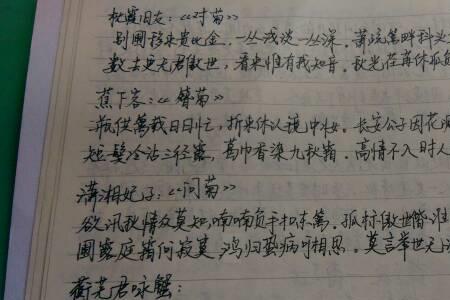 枕霞旧友：《对菊》
别圃移来贵比金，一丛浅淡一丛深。萧疏篱畔科头
数去更无君傲世，看来惟有我知音。秋光荏苒休孤负
蕉下客：《簪菊》
瓶供篱栽日日忙，折来休认镜中妆。长安公子因花
短鬓冷沾三径露，葛巾香染九秋霜。高情不入时人
潇湘妃子：《问菊》
欲讯秋情众莫知，喃喃负手扣东篱。孤标傲世偕谁
圃露庭霜何寂寞，鸿归蛩病可相思。莫言举世无
蘅芜君咏蟹：